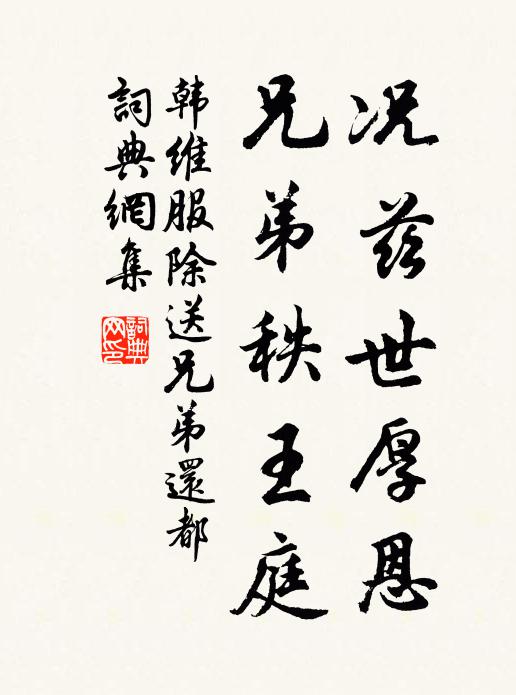 况茲世厚恩
兄弟秩王庭
韩維服除送兄弟還都
詞典網集
詞典网印